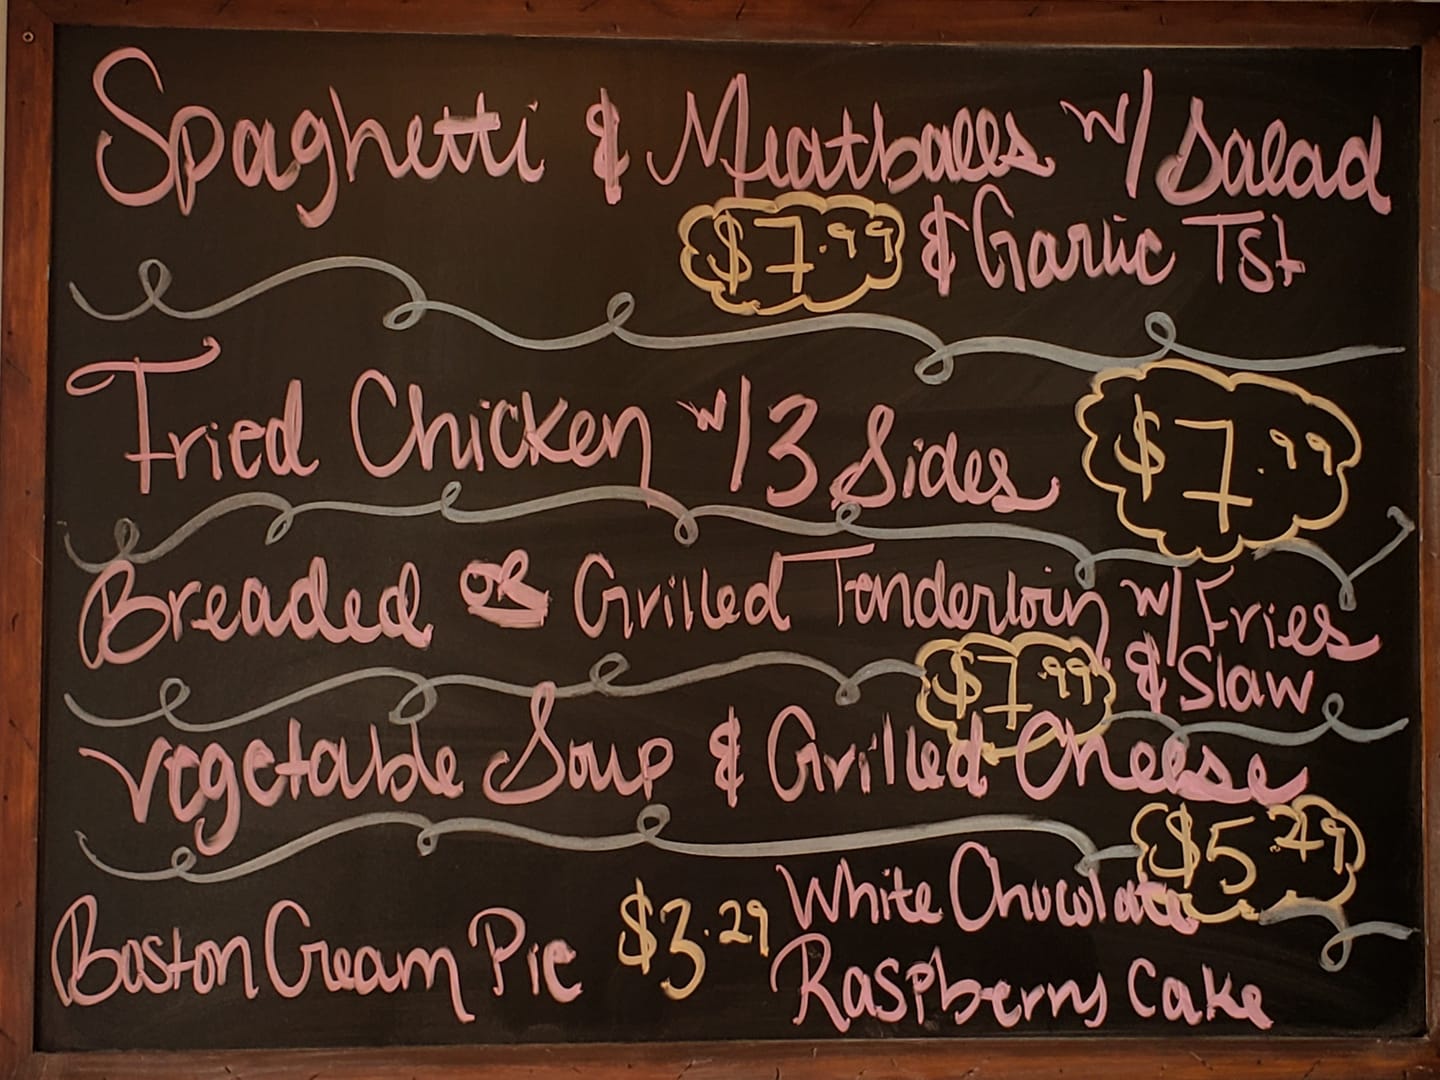 Spaghetti & Meatballs w/ Salad
$7.99 & Garlic Tst
Fried Chicken w/ 3 Sides $7.99
Breaded or Grilled Tenderloin w/ Fries
$7.99 & Slaw
Vegetable Soup & Grilled Cheese
$5.49
Boston Cream Pie $3.29 White Chocolate
Raspberry Cake